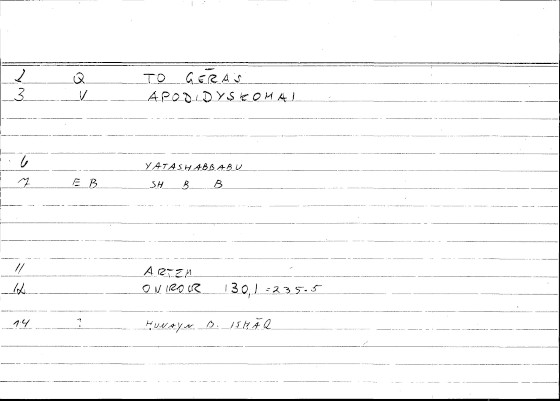 2 Q TO GĒRAS
3 V APODIDYSKOMAI
6 YATASHABBABU
7 EB SH B B
11 ARTEM
12 ONIROCR 130,1 = 235.5
14 ? HUNAYN B. ISHĀQ